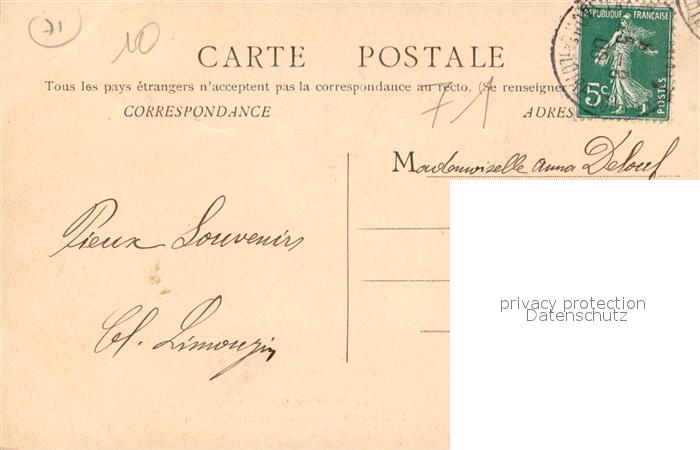 71
10
CARTE POSTALE
RÉPUBLIQUE FRANÇAISE
5c
POSTES
Tous les pays étrangers n'acceptent pas la correspondance au recto. (Se renseigner
71
CORRESPONDANCE
ADRES
Mademoiselle Anna
Pieux Souvenirs
Cl. Limouzin
privacy protection
Datenschutz